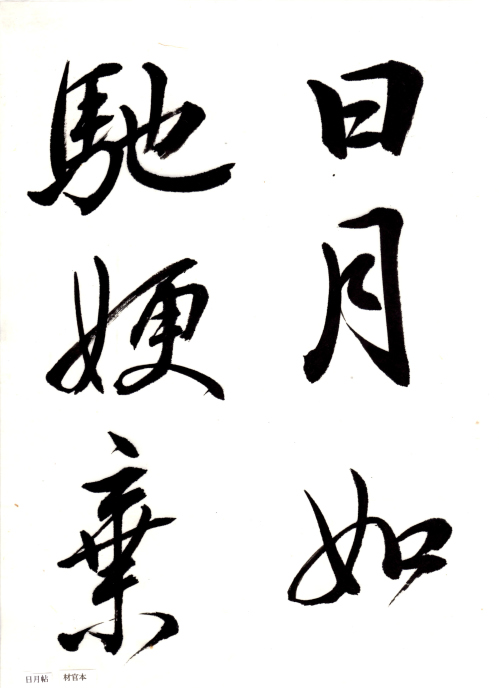 日月如
馳㛐棄
日月帖 材官本